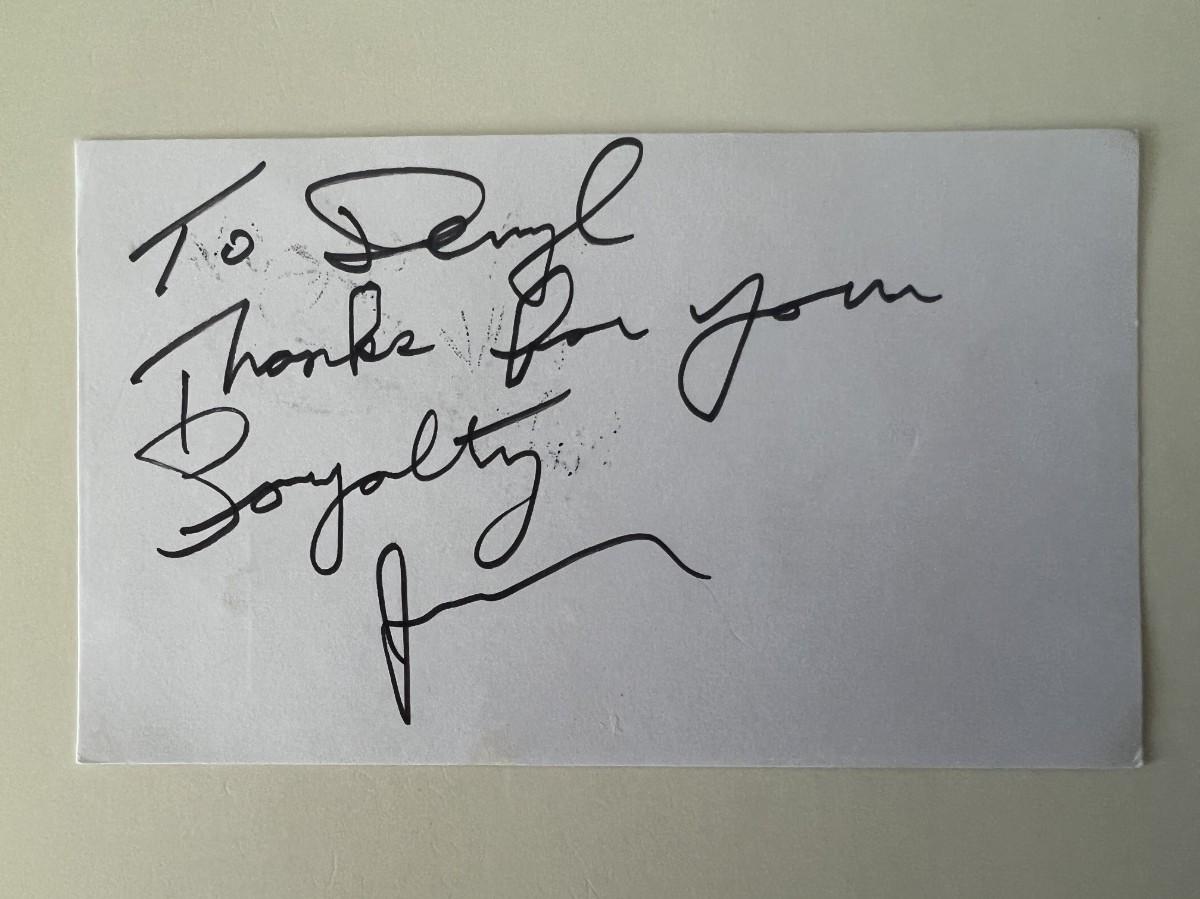 To Deryl
Thanks for your
Loyalty